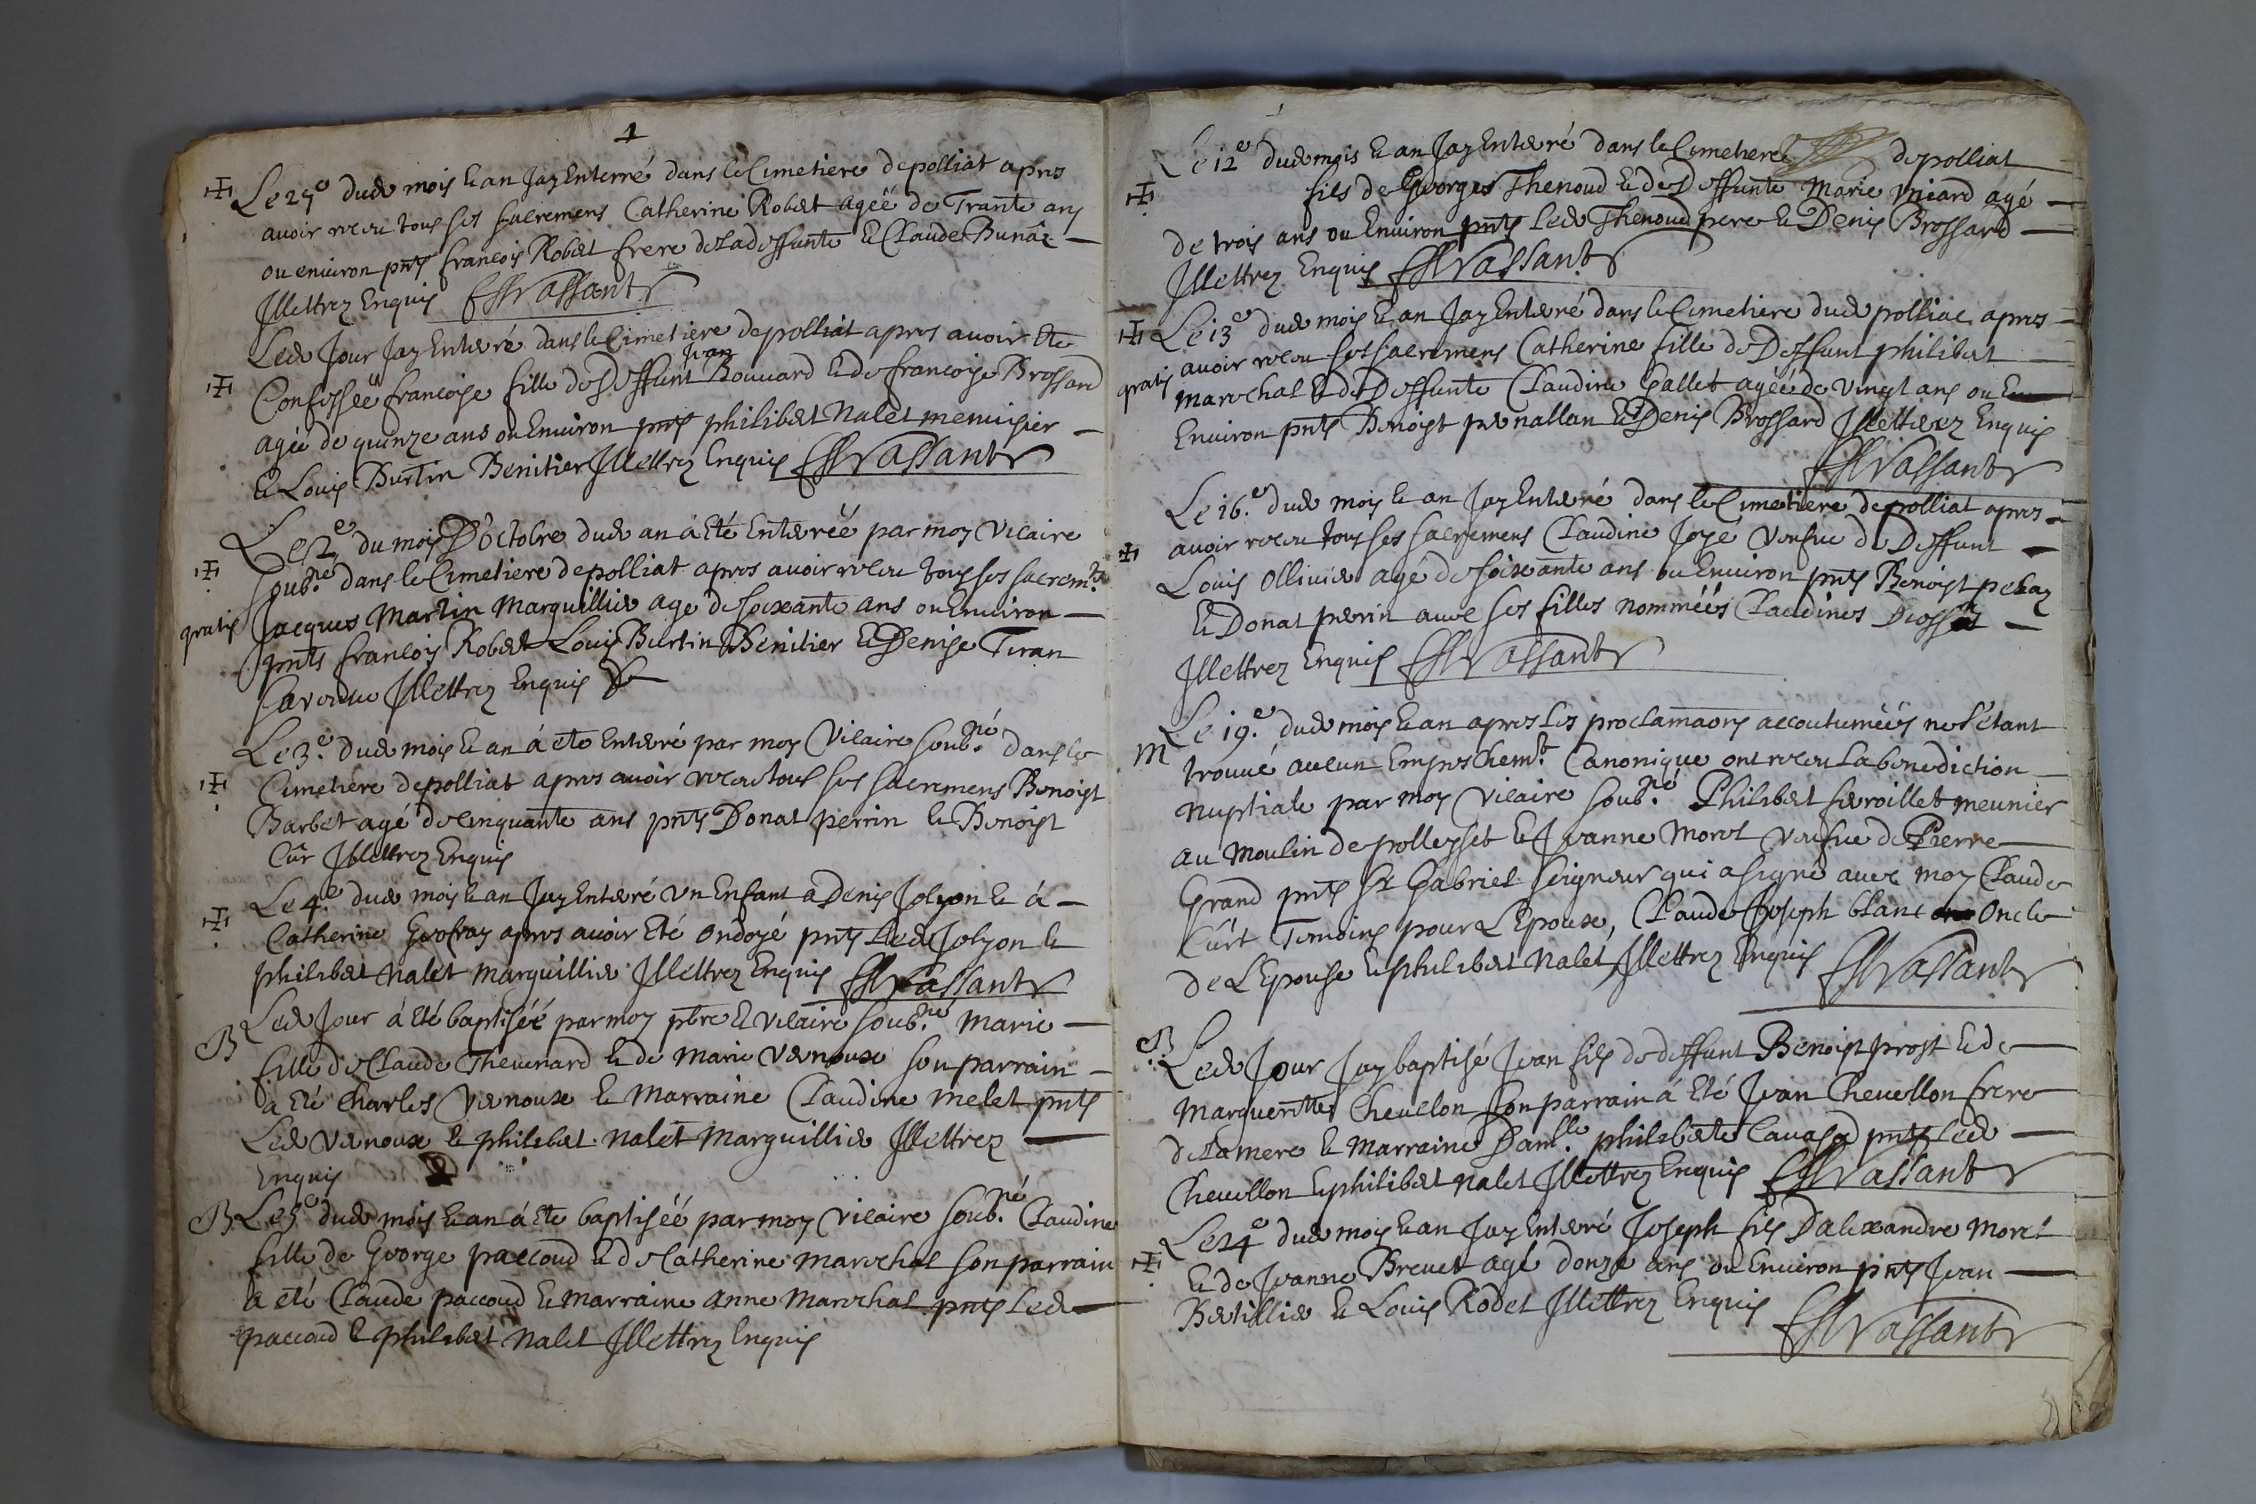 1
Le 27e dud mois & an Jay Enterré dans le Cimetiere de polliat apres
avoir receu tous ses sacremens Catherine Robert agéé de Trante ans
ou environ pnts francois Robert frere de la deffunte & Claude Bunaz
Illettrez Enquis Vassant
Led Jour Jay Enterré dans le Cimetiere de polliat apres avoir ete
Confesséé francoise fille de deffunt Jean Bouvard & de francoise Brossard
agée de quinze ans ou Environ pnts philibert Nalet menuisier
& Louis Burtin Benitier Illettrez Enquis Vassant
Le 2e du mois D'octobre dud an á eté Enterréé par moy Vicaire
soubné dans le Cimetiere de polliat apres avoir receu tous ses sacremts
gratis Jacques Martin Marguillier agé de soixante ans ou Environ
pnts francois Robert Louis Burtin Benitier & Denise Tiran
sa vendue Illettrez Enquis
Le 3e dud mois & an á eté Enterré par moy Vicaire soubné dans le
Cimetiere de polliat apres avoir receu tous ses sacremens Benoist
Barbet agé de cinquante ans pnts Donat perrin & Benoist
Cûr Illettrez Enquis
Le 4e dud mois & an Jay Enterré Un Enfant a Denis Jolyon & á
Catherine Geofray apres avoir Eté ondoyé pnts Led Jolyon &
philibert Nalet Marguillier Illettrez Enquis Vassant
B Led Jour á Eté baptiséé par moy pbre & Vicaire soubné Marie
fille de Claude Thevenard & de Marie Vernoux son parrain
a Eté Charles Vernoux & Marraine Claudine Melet pnts
Led Vernoux & philibert Nalet Marguillier Illettrez
Enquis
B Le 5e dud mois & an á Ete baptiséé par moy Vicaire soubné Claudine
fille de George paccoud & de Catherine Marechal son parrain
a eté Claude paccoud & Marraine Anne Marechal pnts Led
paccoud & philibert Nalet Illettrez Enquis
Le 12e dud mois & an Jay Enterré dans le Cimetiere de polliat
fils de Georges Thenoud & de Deffunte Marie Uniard agé
de trois ans ou Environ pnts Led Thenoud pere & Denis Brossard
Illettrez Enquis Vassant
Le 13e dud mois & an Jay Enterré dans le Cimetiere dud polliac apres
gratis avoir receu ses sacremens Catherine fille de Deffunt philibert
Marechal & de Deffunte Claudine Gallet agéé de Vingt ans ou
Environ pnts Benoist pernallan & Denis Brossard Illetterez Enquis
Vassant
Le 16e dud mois & an Jay Enterré dans le Cimetiere de polliat apres
avoir receu tous ses sacremens Claudine Joyé Veufue de Deffunt
Louis Ollivier agé de soixante ans ou Environ pnts Benoist pelay
& Donat perrin avec ses filles nommées Claudines
Illettrez Enquis Vassant
M Le 19e dud mois & an apres les proclamaons accoutuméés ne s'étant
trouvé aucun Empeschemt Canonique ont receu la benediction
nuptiale par moy Vicaire soubné Philibert ferroillet meunier
au Moulin de polleyset & Jeanne Morel Veufue de Pierre
Grand pnts Sr Gabriel seigneur qui a signé avec moy Claude
Cûrt Temoins pour L'Epoux, Claude Joseph blanc Oncle
de L'Epouse & philibert Nalet Illettrez Enquis Vassant
B Led Jour Jay baptisé Jean fils de deffunt Benoist prost & de
Margueritte Chevellon son parrain á Eté Jean Chevellon frere
de la mere & Marraine Damlle philiberte Cavasod pnts Led
Chevellon & philibert Nalet Illettrez Enquis Vassant
Le 24e dud mois & an Jay Enterré Joseph fils D'alexandre Morel
& de Jeanne Brevet agé donze ans ou Environ pnts Jean
Bertillier & Louis Rodet Illettrez Enquis Vassant